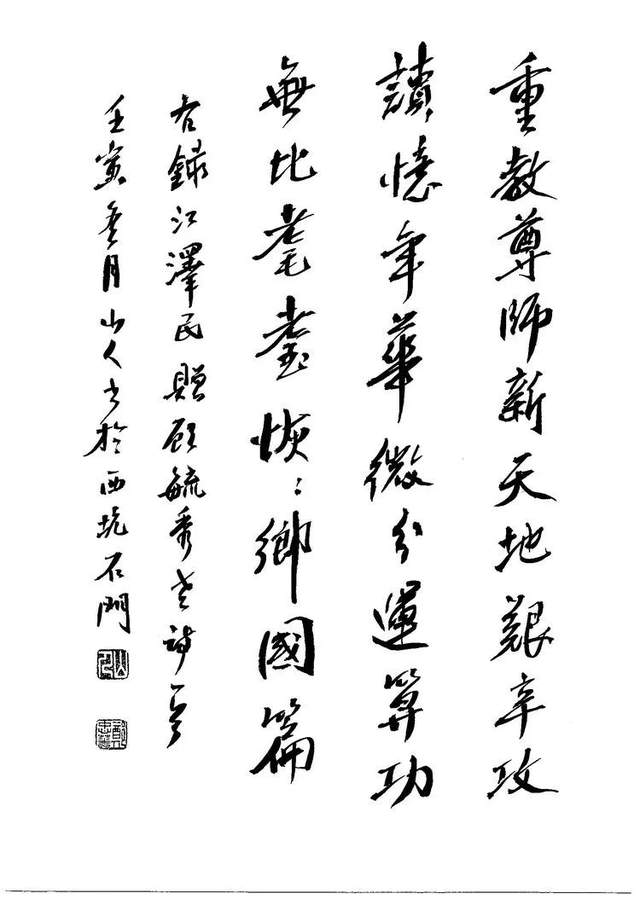 重教尊師新天地艱辛攻
讀憶年華微分運算功
無比耄耋恢〻鄉國篇
右錄江澤民贈顧毓秀老詩一首
壬寅月山人書於西坑石門